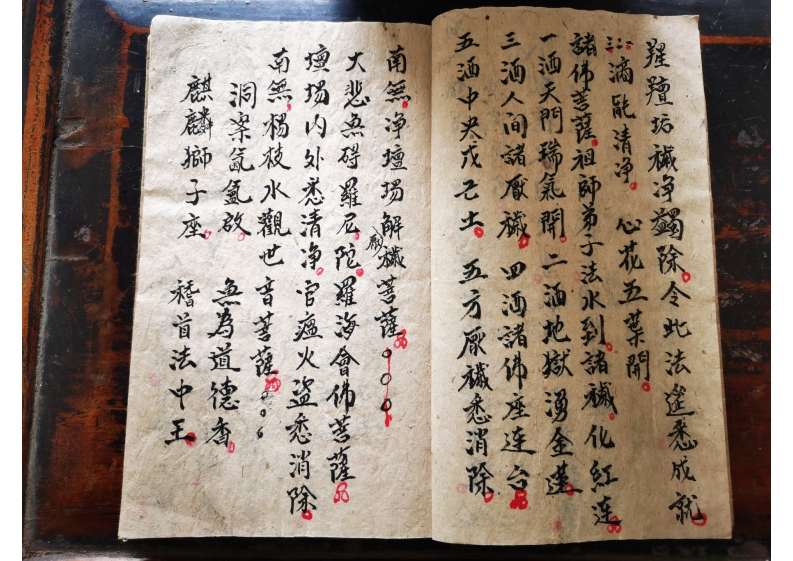 羶坊穢净蠲除令此法筵悉成就
三滴能清净 心花五葉開
諸佛菩薩祖師弟子法水到諸穢化紅连
一洒天門瑞氣開二洒地獄湧金莲
三洒人间諸厭穢四洒諸佛座连台
五洒中央戊己土 五方厭穢悉消除
南無净壇場解厭穢菩薩
大悲無碍羅尼陀羅海會佛菩薩
壇場内外悉清净官瘟火盗悉消除
南無楊枝水觀世音菩薩
洞案氤氳啟 無為道德香
麒麟獅子座 稽首法中王